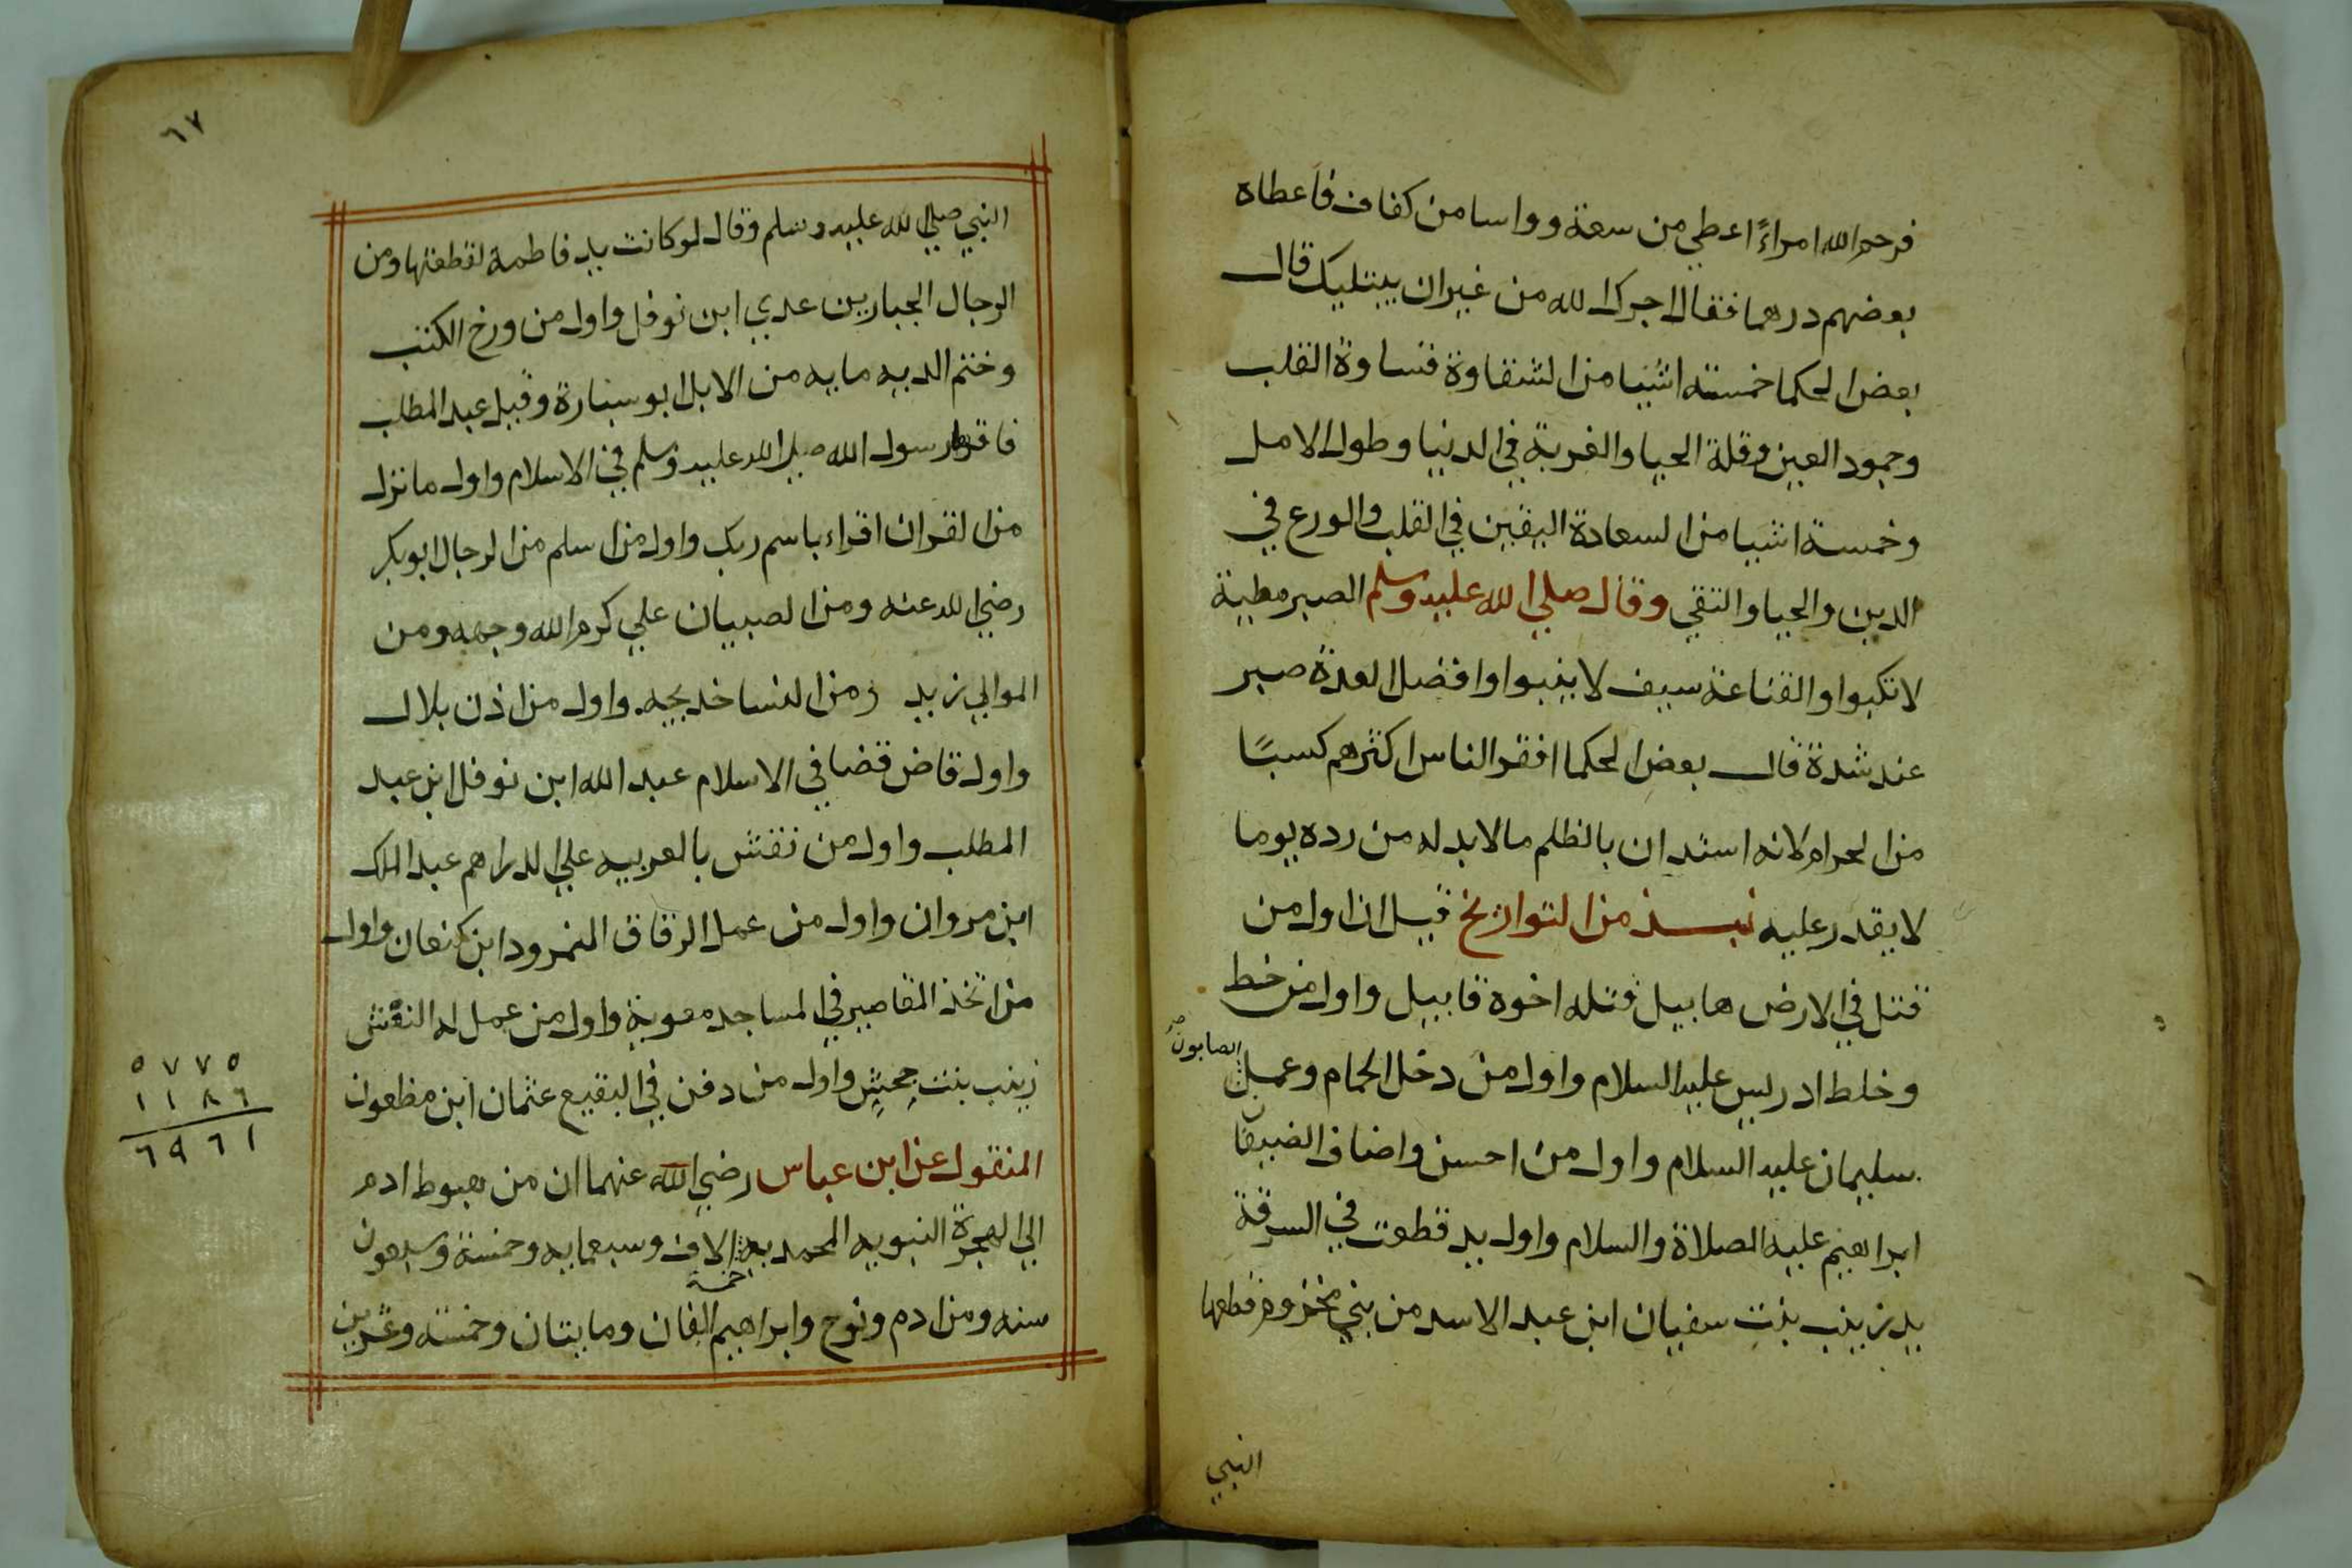 فرحم الله امراءً اعطي من سعة وواسا من كفاف فاعطاه
بعضهم درهما فقال اجرك الله من غير ان يبتليك قال
بعض الحكما خمسته اشيا من الشقاوة قساوة القلب
وجمود العين وقلة الحيا والغربة في الدنيا وطول الامل
وخمسة اشيا من السعادة اليقين في القلب والورع في
الدين والحيا والتقي وقال صلي الله عليه وسلم الصبر مطية
لا تكبوا والقناعة سيف لا ينبوا وافضل العدة صبر
عند شدة قال بعض الحكما افقر الناس اكثرهم كسبًا
من الحرام لانه استدان بالظلم ما لا بد له من رده يوما
لا يقدر عليه نبذ من التواريخ قيل ان اول من
قتل في الارض هابيل قتله اخوه قابيل واول من خط
وخلط ادريس عليه السلام واول من دخل الحمام وعمل
الصابون
سليمان عليه السلام واول من احسن واضاف الضيفان
ابراهيم عليه الصلاة والسلام واول يد قطعت في السرقة
يد زينب بنت سفيان ابن عبد الاسد من بني مخزوم قطعها
النبي
٦٧
النبي صلي الله عليه وسلم وقال لو كانت يد فاطمة لقطعتها ومن
الرجال الجبارين عدي ابن نوفل واول من ورخ الكتب
وختم الديه مايه من الابل ابو سيارة وقيل عبد المطلب
فاقرها رسول الله صلي الله عليه وسلم في الاسلام واول ما نزل
من القران اقراء باسم ربك واول من اسلم من الرجال ابو بكر
رضي الله عنه ومن الصبيان علي كرم الله وجهه ومن
الموالي زيد ومن النسا خديجه واول من اذن بلال
واول قاض قضا في الاسلام عبد الله ابن نوفل ابن عبد
المطلب واول من نقش بالعربيه علي الدراهم عبد الملك
ابن مروان واول من عمل الرقاق النمرود ابن كنعان واول
من اتخذ المقاصير في المساجد معوية واول من عمل له النعش
زينب بنت جحش واول من دفن في البقيع عثمان ابن مظعون
المنقول عن ابن عباس رضي الله عنهما ان من هبوط ادم
الي الهجرة النبويه المحمديه الاف وسبعمايه وخمسة وسبعون
خمسة
سنه ومن ادم ونوح وابراهيم الفان ومايتان وخمسته وعشرين
٥٧٧٥
١١٨٦
٦٩٦١